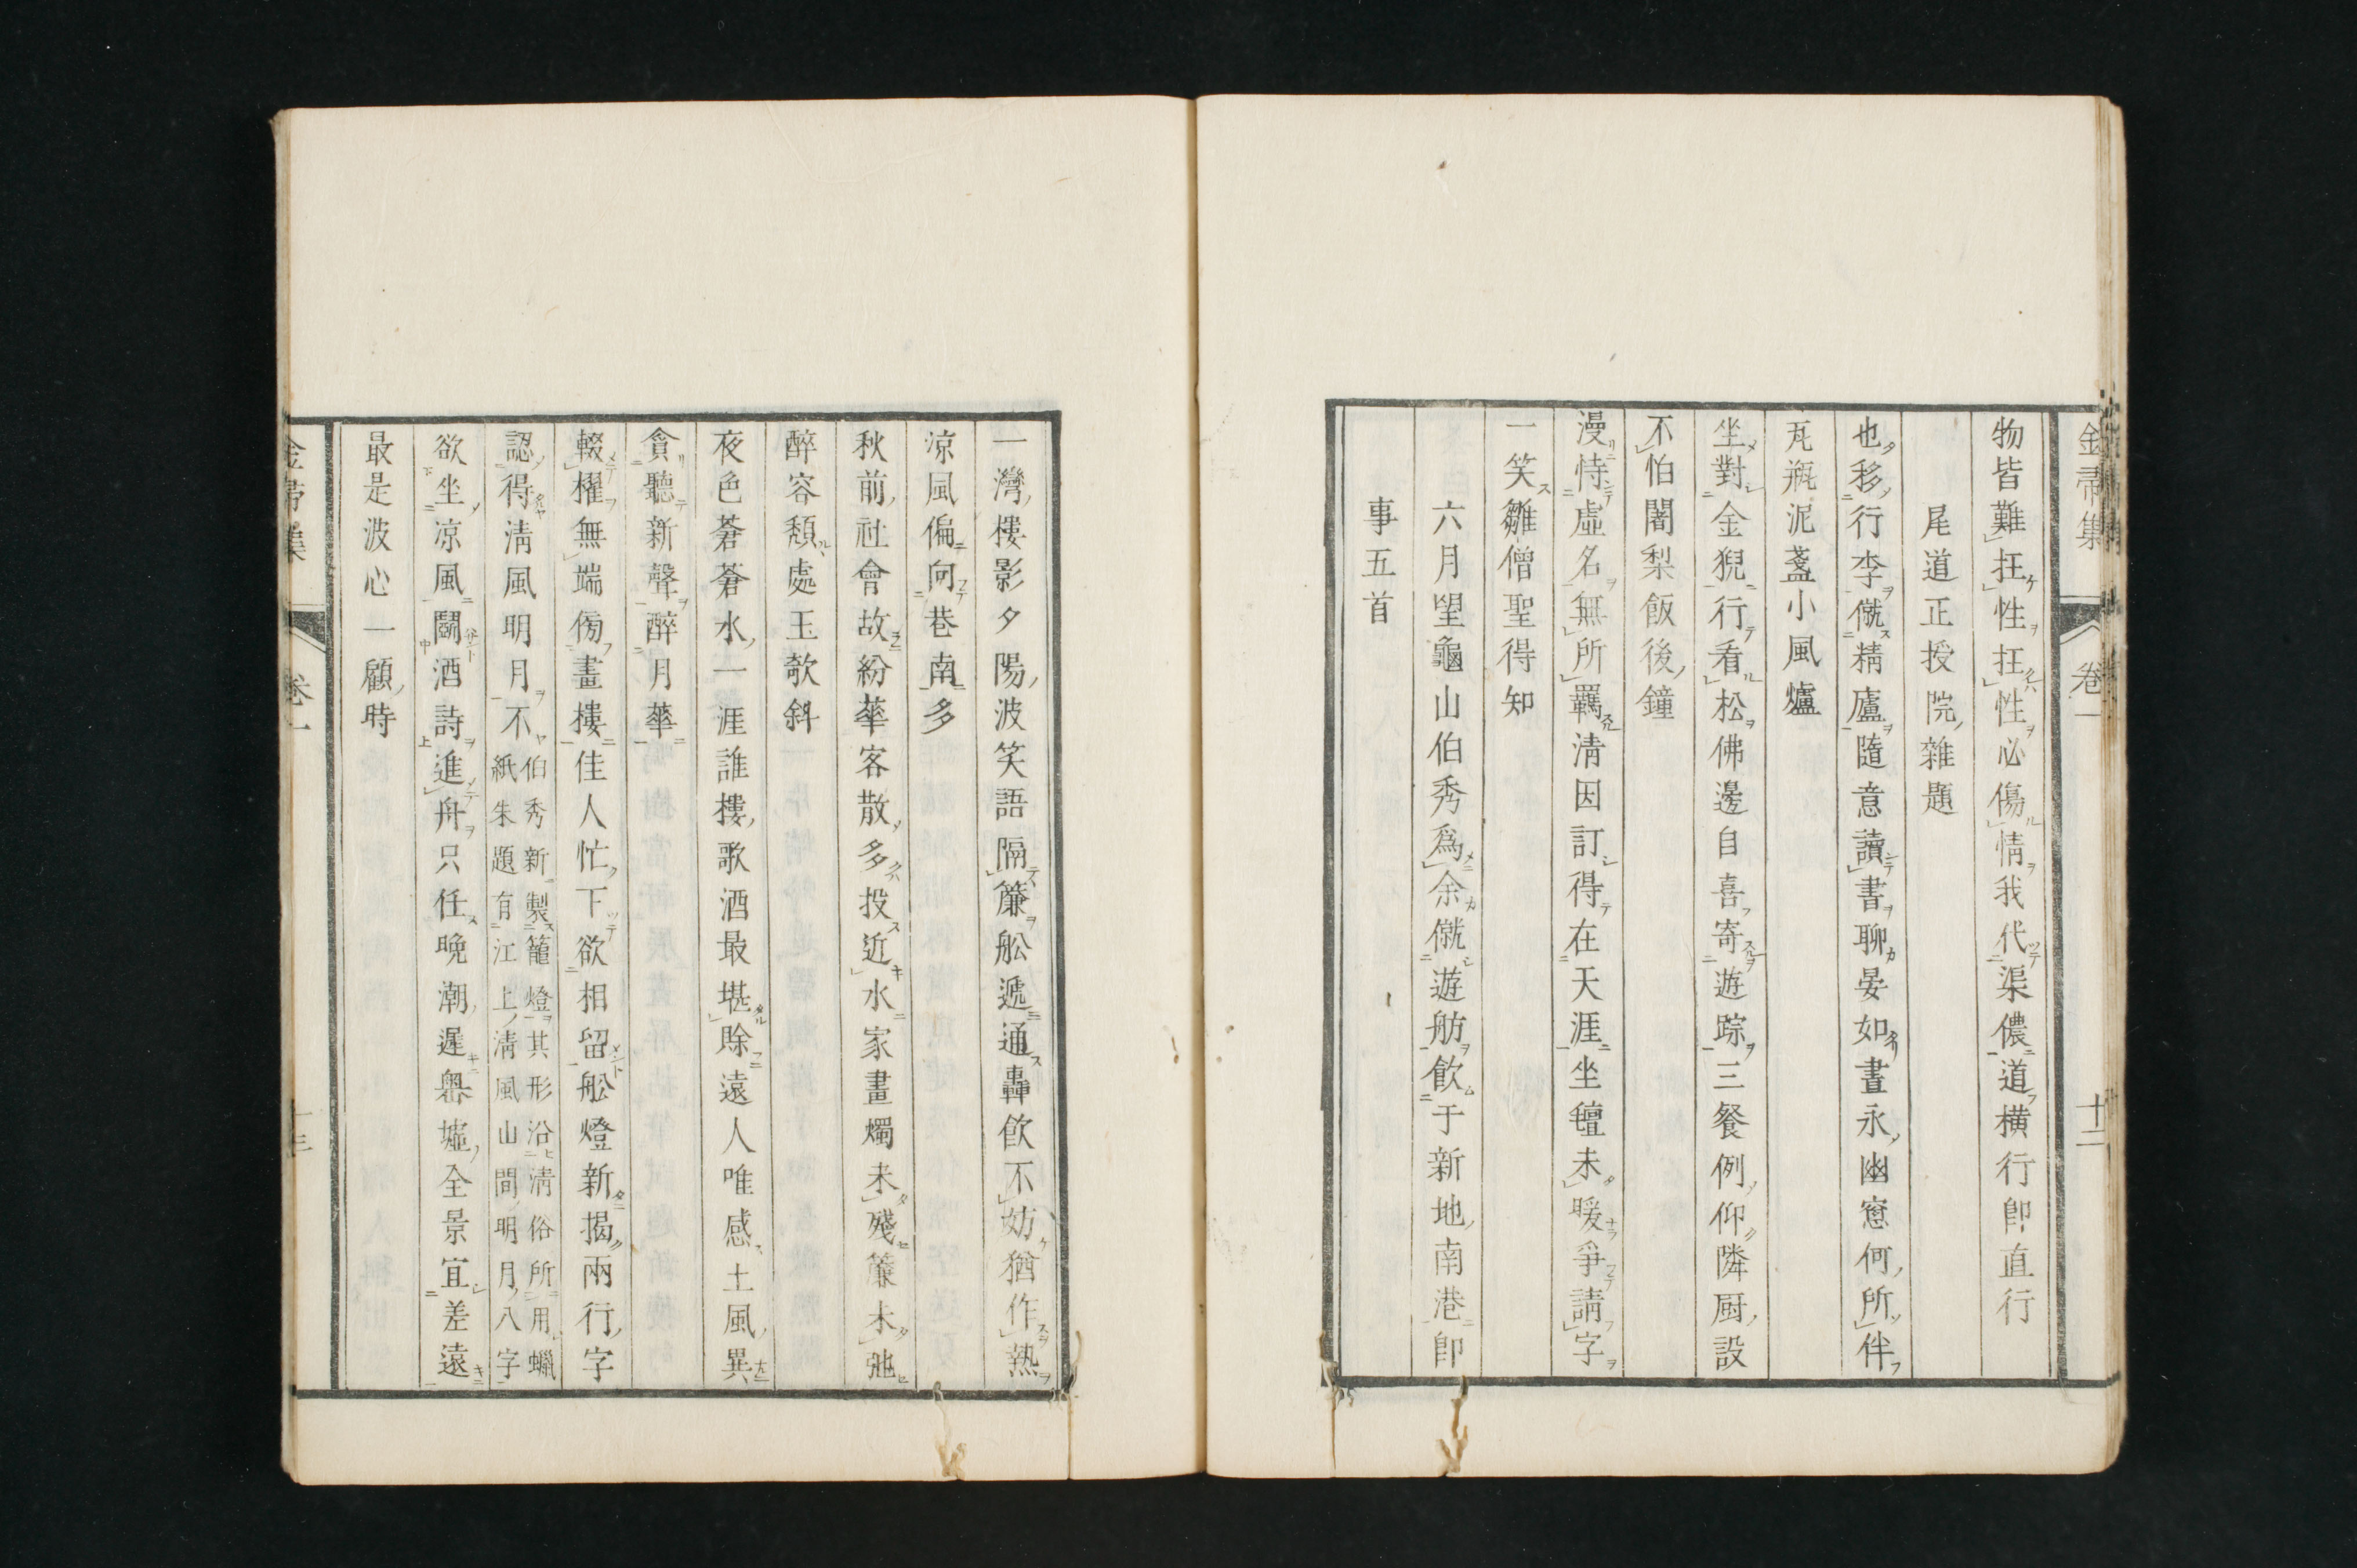 金帚集 卷一 十二
物皆難扗性扗性必傷情我代渠儂道橫行卽直行
尾道正授院雜題
也移行李僦精廬隨意讀書聊晏如晝永幽窻何所伴
瓦瓶泥盞小風爐
坐對金猊行看松佛邊自喜寄遊踪三餐例仰隣厨設
不怕闍梨飯後鐘
漫恃虛名無所羈淸因訂得在天涯坐氊未暖爭請字
一笑雛僧聖得知
六月望龜山伯秀爲余僦遊舫飮于新地南港卽
事五首
一灣樓影夕陽波笑語隔簾舩遞通轟飮不妨猶作熱
凉風偏向巷南多
秋前社會故紛華客散多投近水家畫燭未殘簾未弛
醉容頹處玉欹斜
夜色蒼蒼水一涯誰樓歌酒最堪賖遠人唯感土風異
貪聽新聲醉月華
輟櫂無端傍畫樓佳人忙下欲相留舩燈新揭兩行字
認得淸風明月不伯秀新製籠燈其形沿淸俗所用蠟
紙朱題有江上淸風山間明月八字
欲坐凉風鬪酒詩進舟只任晩潮遲舉墟全景宜差遠
最是波心一顧時
金帚集 卷一 十三